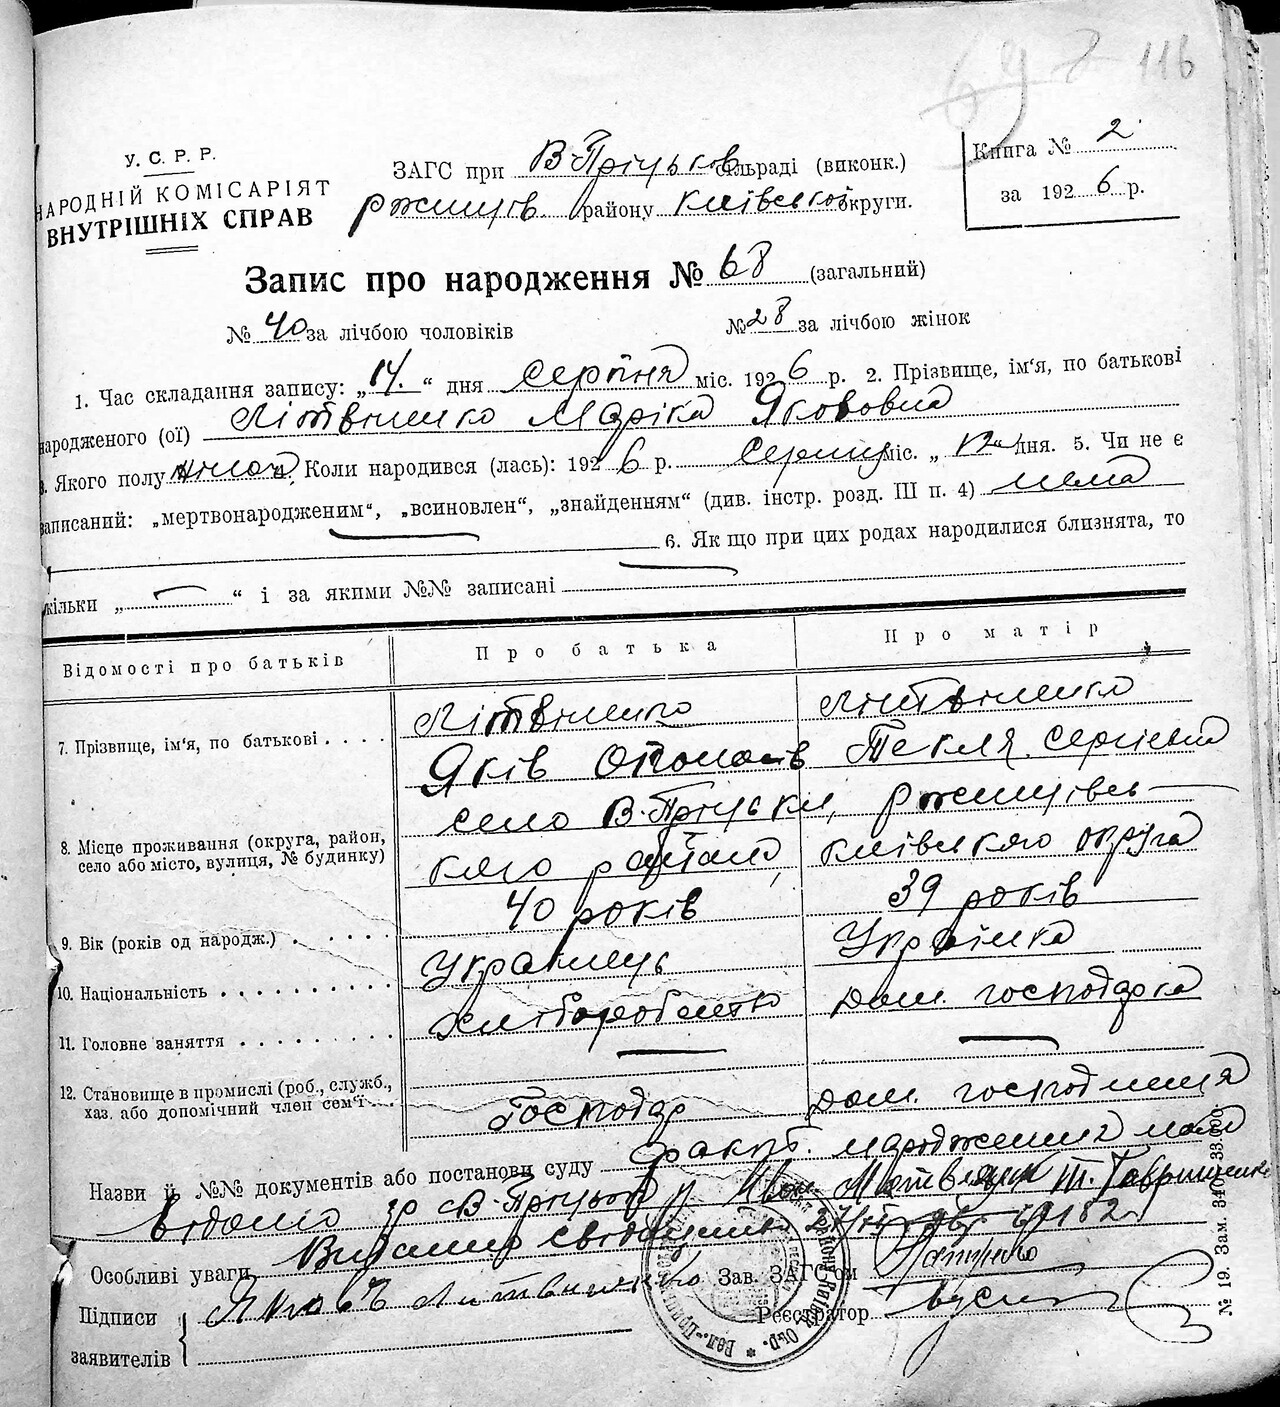 116
У. С. Р. Р.
НАРОДНІЙ КОМІСАРІЯТ
ВНУТРІШНІХ СПРАВ
ЗАГС при В-Пріцьков сільраді (виконк.)
ржищів району київської округи.
Книга № 2
за 1926 р.
Запис про народження № 68 (загальний)
№ 40 за лічбою чоловіків № 28 за лічбою жінок
1. Час складання запису: „14.“ дня серпня міс. 1926 р. 2. Прізвище, ім‘я, по батькові
народженого (ої) Літвіненко Маріка Якововна
3. Якого полу 4. Коли народився (лась): 1926 р. Серпня міс. „12“ дня. 5. Чи не є
записаний: „мертвонародженим“, „всиновлен“, „знайденням“ (див. інстр. розд. III п. 4) нема
6. Як що при цих родах народилися близнята, то
скільки „ — “ і за якими №№ записані
Відомості про батьків Про батька Про матір
7. Прізвище, ім‘я, по батькові . . . . Літвіненко Літвіненко
Яків Текля Сергієвна
8. Місце проживання (округа, район, село або місто, вулиця, № будинку) село В-Пріцьки, ржищівсь-
кого району, київського округа
9. Вік (років од народж.) . . . . . . 40 років 39 років
10. Національність . . . . . . . . . . Українець Українка
11. Головне заняття . . . . . . . . . хліборобство дом. господарка
12. Становище в промислі (роб., служб., хаз. або допомічний член сем‘ї . . . Господар дом. господиня
Назви й №№ документів або постанови суду факт. народження
відомо гр В-Прицьок
Особливі уваги Видано свідоцтво
Зав. ЗАГС‘ом
Підписи Яковъ Литвиненко
заявителів
Реєстратор
№ 19. Зам. 340—33.000